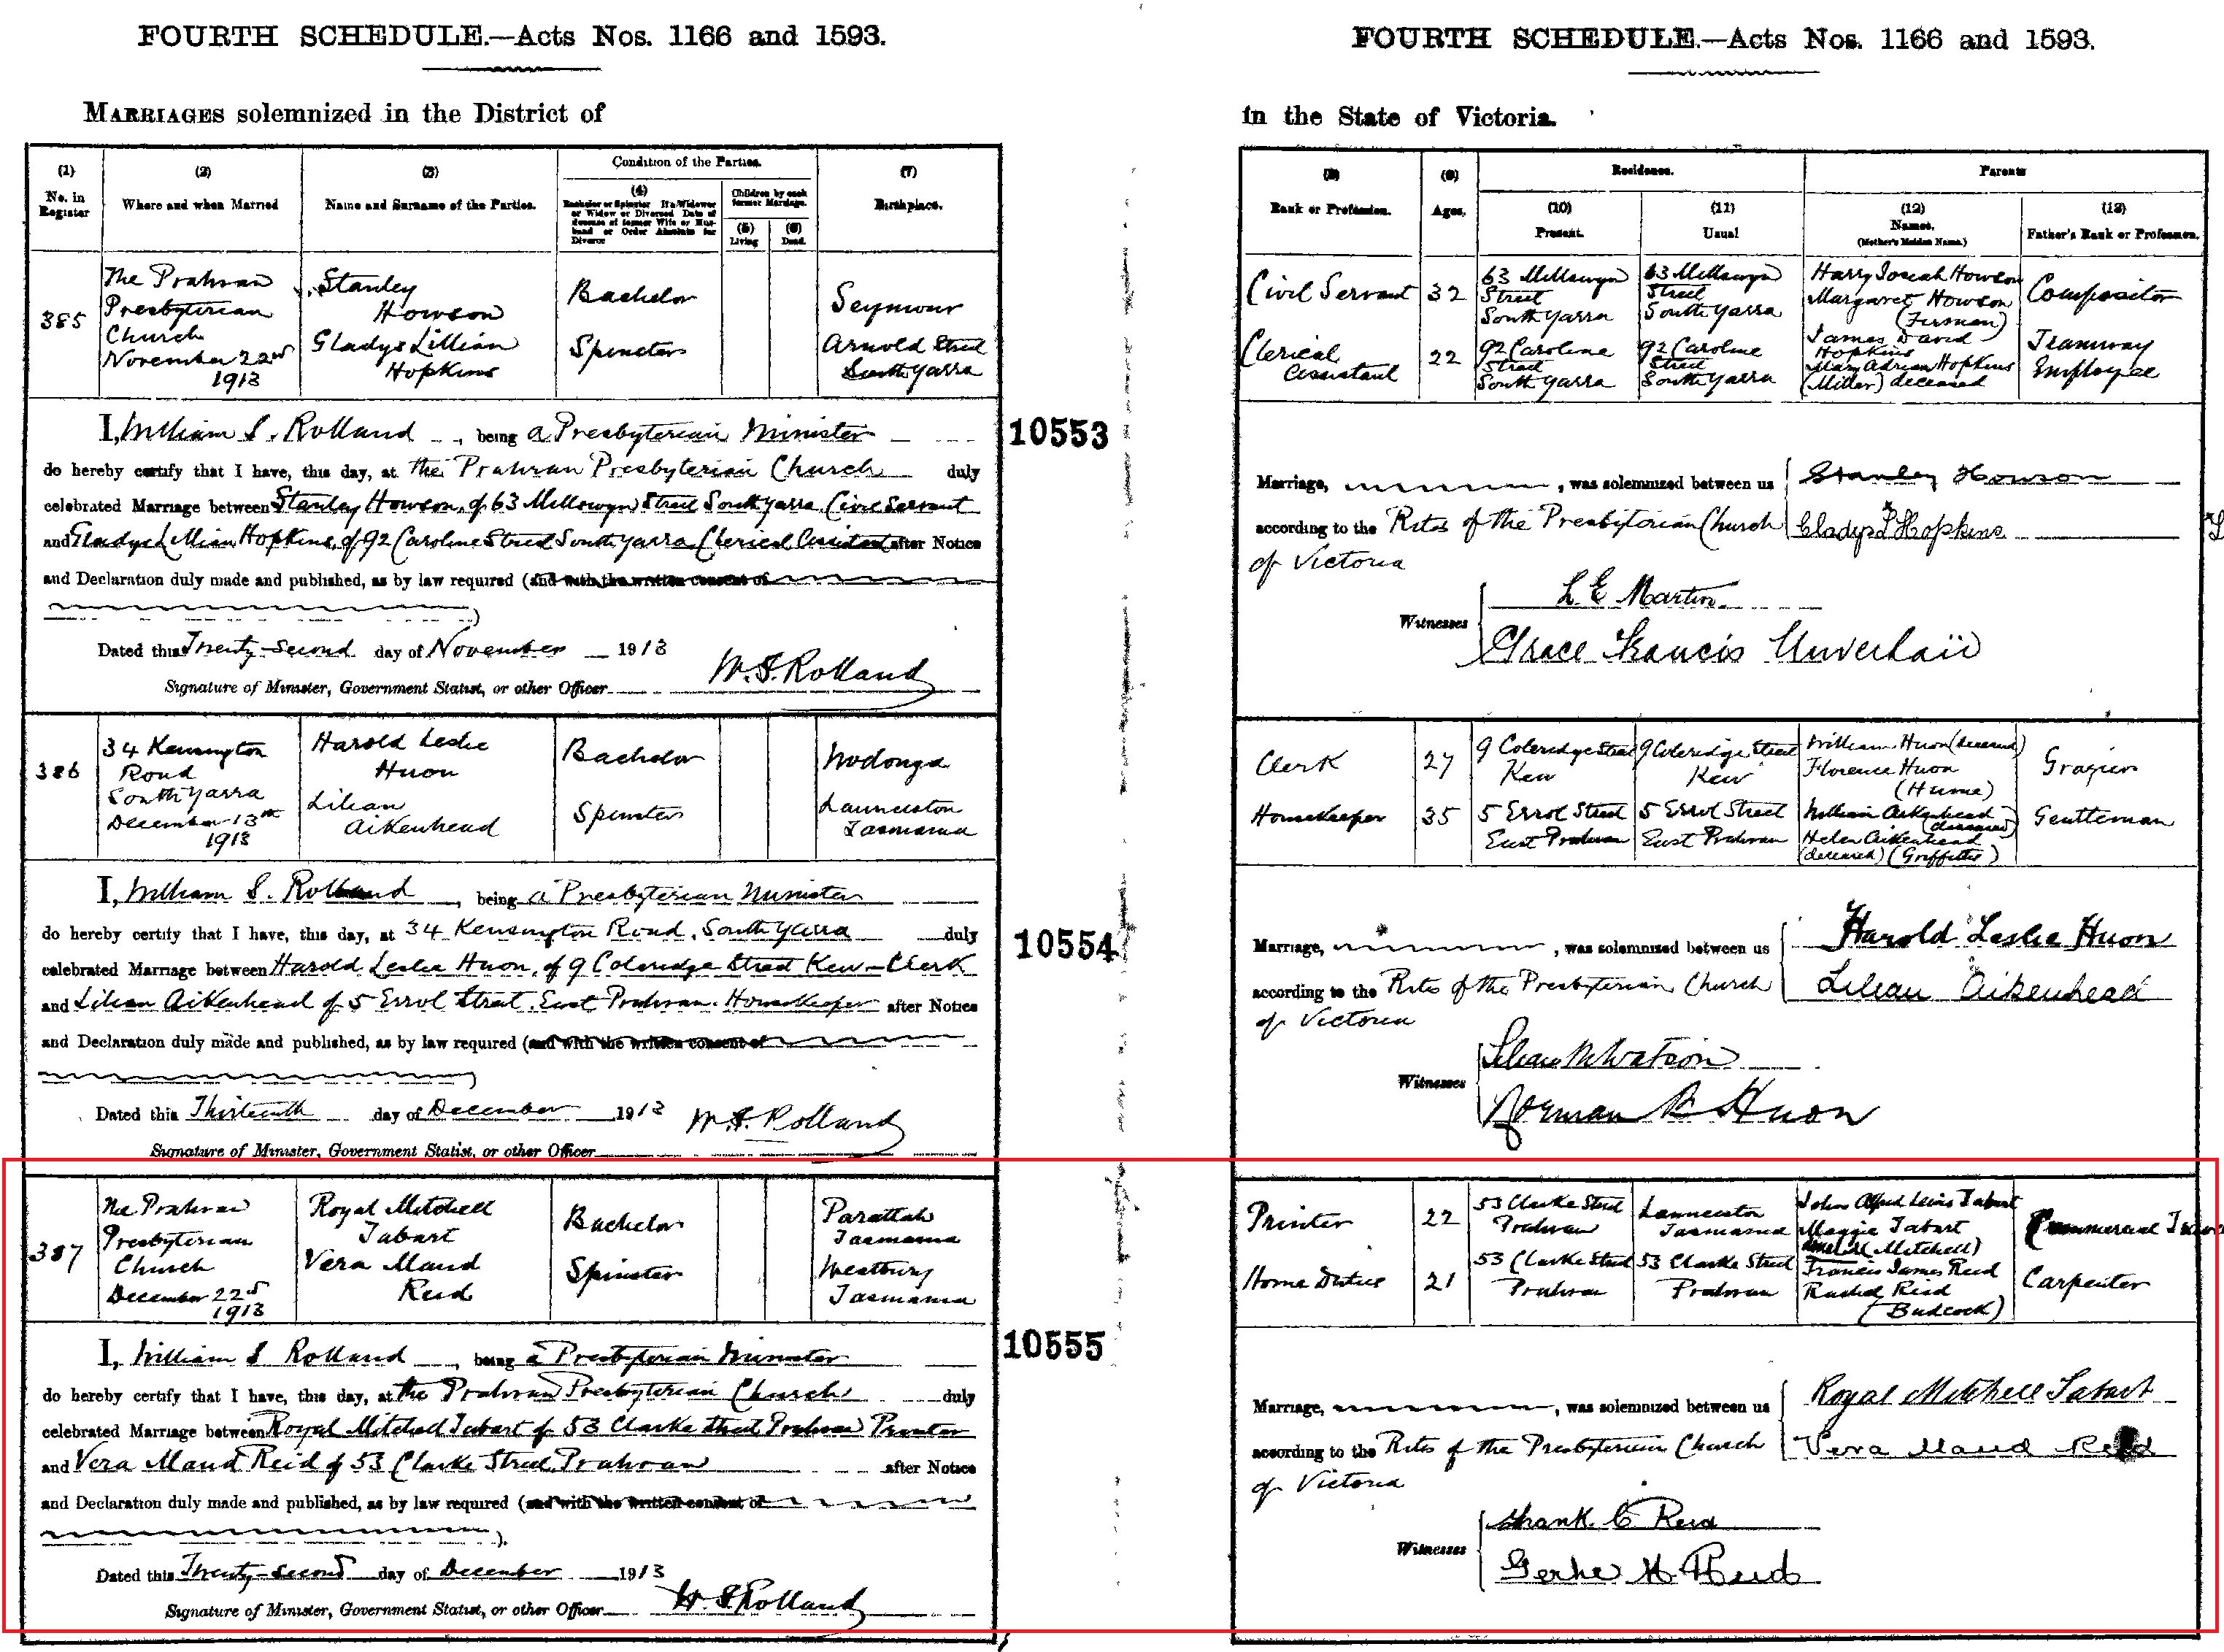 FOURTH SCHEDULE.—Acts Nos. 1166 and 1593.
MARRIAGES solemnized in the District of
(1)
No. in
Register
(2)
Where and when Married
(3)
Name and Surname of the Parties.
Condition of the Parties.
(4)
Bachelor or Spinster If a Widower
or Widow or Divorced Date of
decease of former Wife or Hus-
band or Order Absolute for
Divorce
Children by each
former Marriage.
(5)
Living
(6)
Dead.
(7)
Birthplace.
385
The Prahran
Presbyterian
Church
November 22nd
1913
Stanley
Howson
Gladys Lillian
Hopkins
Bachelor
Spinster
Seymour
Arnold Street
South Yarra
I, William S. Rolland, being a Presbyterian Minister
do hereby certify that I have, this day, at the Prahran Presbyterian Church duly
celebrated Marriage between Stanley Howson, of 63 Millswyn Street South Yarra Civil Servant
and Gladys Lillian Hopkins, of 92 Caroline Street South Yarra Clerical Assistant after Notice
and Declaration duly made and published, as by law required (and with the written consent of
)
Dated this Twenty-Second day of November 1913
W. S. Rolland
Signature of Minister, Government Statist, or other Officer
10553
386
34 Kensington
Road
South Yarra
December 13th
1913
Harold Leslie
Huon
Lilian
Aikenhead
Bachelor
Spinster
Wodonga
Launceston
Tasmania
I, William S. Rolland, being a Presbyterian Minister
do hereby certify that I have, this day, at 34 Kensington Road, South Yarra duly
celebrated Marriage between Harold Leslie Huon, of 9 Coleridge Street Kew - Clerk
and Lilian Aikenhead of 5 Errol Street, East Prahran. Housekeeper after Notice
and Declaration duly made and published, as by law required (and with the written consent of
)
Dated this Thirteenth day of December 1913
W. S. Rolland
Signature of Minister, Government Statist, or other Officer
10554
387
The Prahran
Presbyterian
Church
December 22nd
1913
Royal Mitchell
Tabart
Vera Maud
Reid
Bachelor
Spinster
Parattah
Tasmania
Westbury
Tasmania
I, William S Rolland, being a Presbyterian Minister
do hereby certify that I have, this day, at the Prahran Presbyterian Church duly
celebrated Marriage between Royal Mitchell Tabart of 53 Clarke Street Prahran Printer
and Vera Maud Reid of 53 Clarke Street Prahran after Notice
and Declaration duly made and published, as by law required (and with the written consent of
).
Dated this Twenty-Second day of December 1913
W. S. Rolland
Signature of Minister, Government Statist, or other Officer
10555
FOURTH SCHEDULE.—Acts Nos. 1166 and 1593.
in the State of Victoria.
(8)
Rank or Profession.
(9)
Ages.
Residence.
(10)
Present.
(11)
Usual
Parents
(12)
Names.
(Mother's Maiden Name.)
(13)
Father's Rank or Profession.
Civil Servant
32
63 Millswyn
Street
South Yarra
63 Millswyn
Street
South Yarra
Harry Josiah Howson
Margaret Howson
(Firman)
Compositor
Clerical
Assistant
22
92 Caroline
Street
South Yarra
92 Caroline
Street
South Yarra
James David
Hopkins
Mary Adrian Hopkins
(Miller) deceased
Tramway
Employee
Marriage, was solemnized between us
Stanley Howson
according to the Rites of the Presbyterian Church
Gladys L Hopkins
of Victoria
Witnesses
L. E Martin
Grace Francis
Clerk
27
9 Coleridge Street
Kew
9 Coleridge Street
Kew
William Huon (deceased)
Florence Huon
(Hume)
Grazier
Housekeeper
35
5 Errol Street
East Prahran
5 Errol Street
East Prahran
William Aikenhead
(deceased)
Helen Aikenhead
(deceased) (Griffiths)
Gentleman
Marriage, was solemnized between us
Harold Leslie Huon
according to the Rites of the Presbyterian Church
Lilian Aikenhead
of Victoria
Witnesses
Lilian M Watson
Norman B Huon
Printer
22
53 Clarke Street
Prahran
Launceston
Tasmania
John Alfred Lewis Tabart
Maggie Tabart
Mitchell)
Commercial
Home Duties
21
53 Clarke Street
Prahran
53 Clarke Street
Prahran
Francis James Reid
Rachel Reid
(Badcock)
Carpenter
Marriage, was solemnized between us
Royal Mitchell Tabart
according to the Rites of the Presbyterian Church
Vera Maud Reid
of Victoria
Witnesses
Frank C Reid
Reid